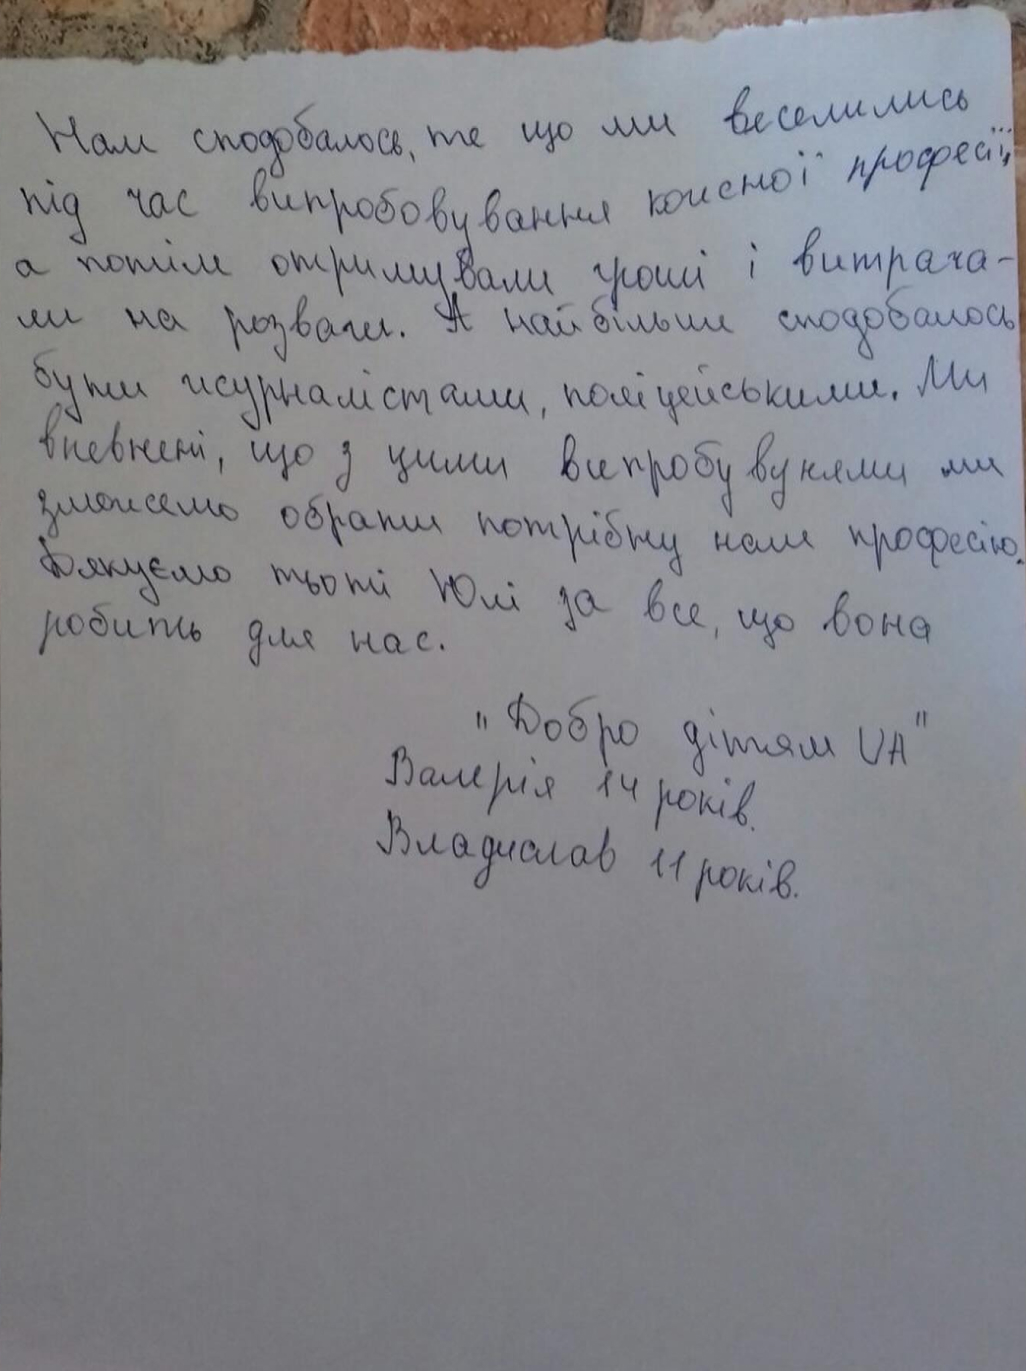 Нам сподобалось, те що ми веселились
під час випробовування кожної професії,
а потім отримували гроші і витрача-
ли на розваги. А найбільше сподобалось
бути журналістами, поліцейськими. Ми
впевнені, що з цими випробувунями ми
зможемо обрати потрібну нам професію.
Дякуємо тьоті Юлі за все, що вона
робить для нас.
"Добро дітям UA"
Валерія 14 років.
Владислав 11 років.